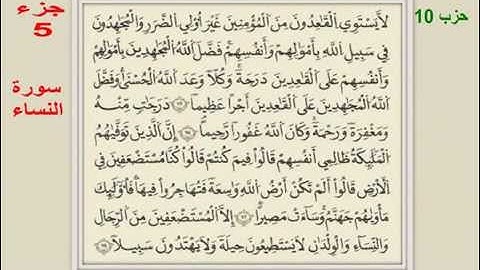 حزب 10
جزء
5
سورة
النساء
لَّا يَسْتَوِي الْقَاعِدُونَ مِنَ الْمُؤْمِنِينَ غَيْرَ أُوْلِي الضَّرَرِ وَالْمُجَاهِدُونَ
فِي سَبِيلِ اللَّهِ بِأَمْوَالِهِمْ وَأَنفُسِهِمْ فَضَّلَ اللَّهُ الْمُجَاهِدِينَ بِأَمْوَالِهِمْ
وَأَنفُسِهِمْ عَلَى الْقَاعِدِينَ دَرَجَةً وَكُلًّا وَعَدَ اللَّهُ الْحُسْنَى وَفَضَّلَ
اللَّهُ الْمُجَاهِدِينَ عَلَى الْقَاعِدِينَ أَجْرًا عَظِيمًا دَرَجَاتٍ مِّنْهُ
وَمَغْفِرَةً وَرَحْمَةً وَكَانَ اللَّهُ غَفُورًا رَّحِيمًا إِنَّ الَّذِينَ تَوَفَّاهُمُ
الْمَلَائِكَةُ ظَالِمِي أَنفُسِهِمْ قَالُوا فِيمَ كُنتُمْ قَالُوا كُنَّا مُسْتَضْعَفِينَ فِي
الْأَرْضِ قَالُوا أَلَمْ تَكُنْ أَرْضُ اللَّهِ وَاسِعَةً فَتُهَاجِرُوا فِيهَا فَأُوْلَئِكَ
مَأْوَاهُمْ جَهَنَّمُ وَسَاءَتْ مَصِيرًا إِلَّا الْمُسْتَضْعَفِينَ مِنَ الرِّجَالِ
وَالنِّسَاءِ وَالْوِلْدَانِ لَا يَسْتَطِيعُونَ حِيلَةً وَلَا يَهْتَدُونَ سَبِيلًا